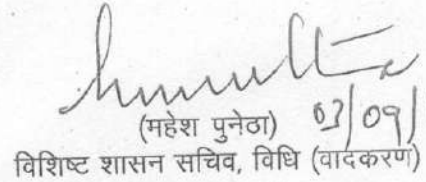 (महेश पुनेठा) 03/09/
विशिष्ट शासन सचिव, विधि (वादकरण)